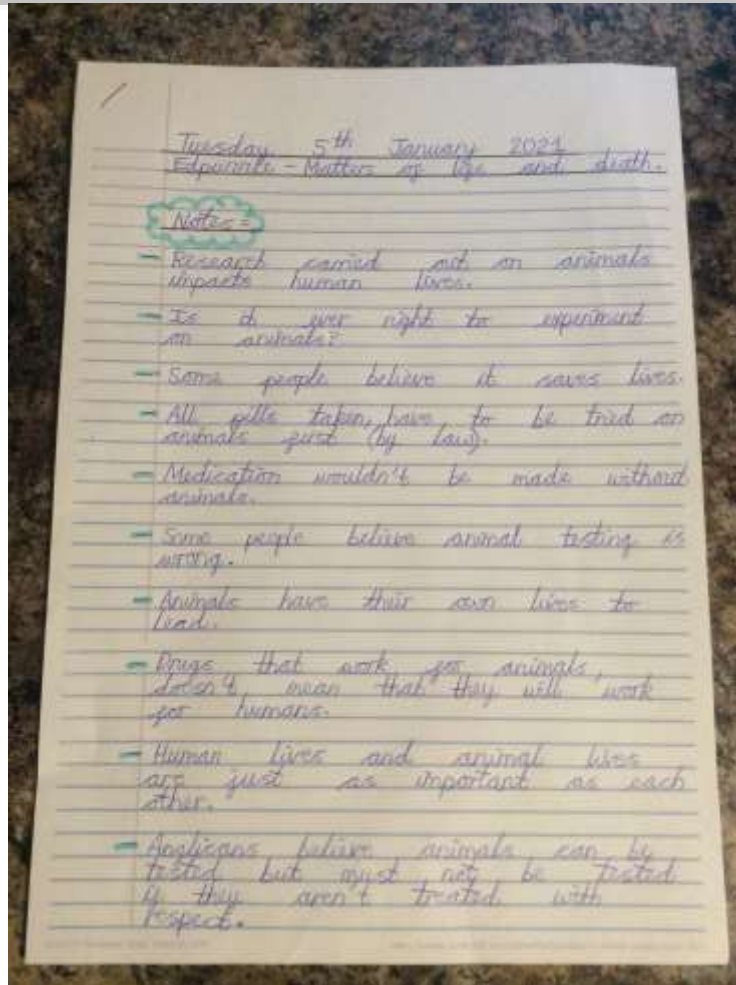 Tuesday 5th January 2021
- Matters of life and death.
Notes =
- Research carried out on animals
impacts human lives.
- Is it ever right to experiment
on animals?
- Some people believe it saves lives.
- All pills taken, have to be tried on
animals first (by law).
- Medication wouldn't be made without
animals.
- Some people believe animal testing is
wrong.
- Animals have their own lives to
lead.
- Drugs that work for animals,
doesn't mean that they will work
for humans.
- Human lives and animal lives
are just as important as each
other.
- Anglicans believe animals can be
tested but must not be tested
if they aren't treated with
respect.